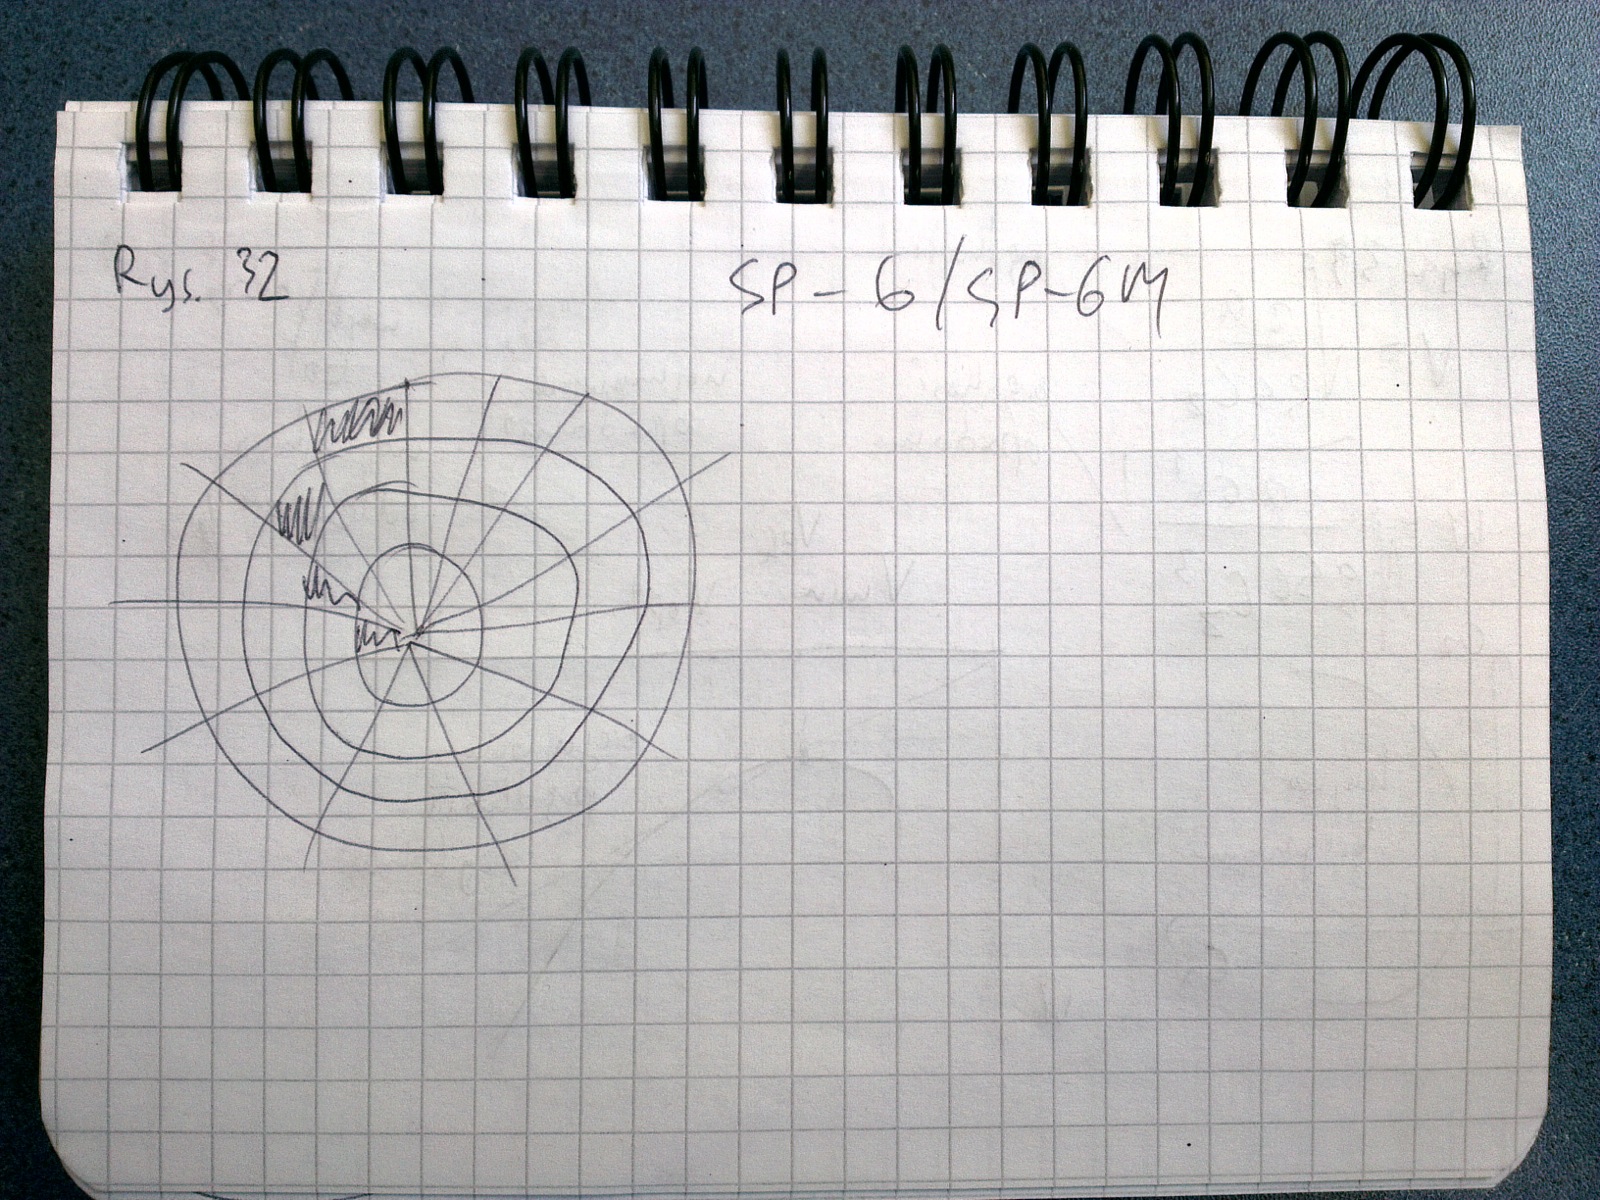 Rys. 32
SP-6/SP-6M